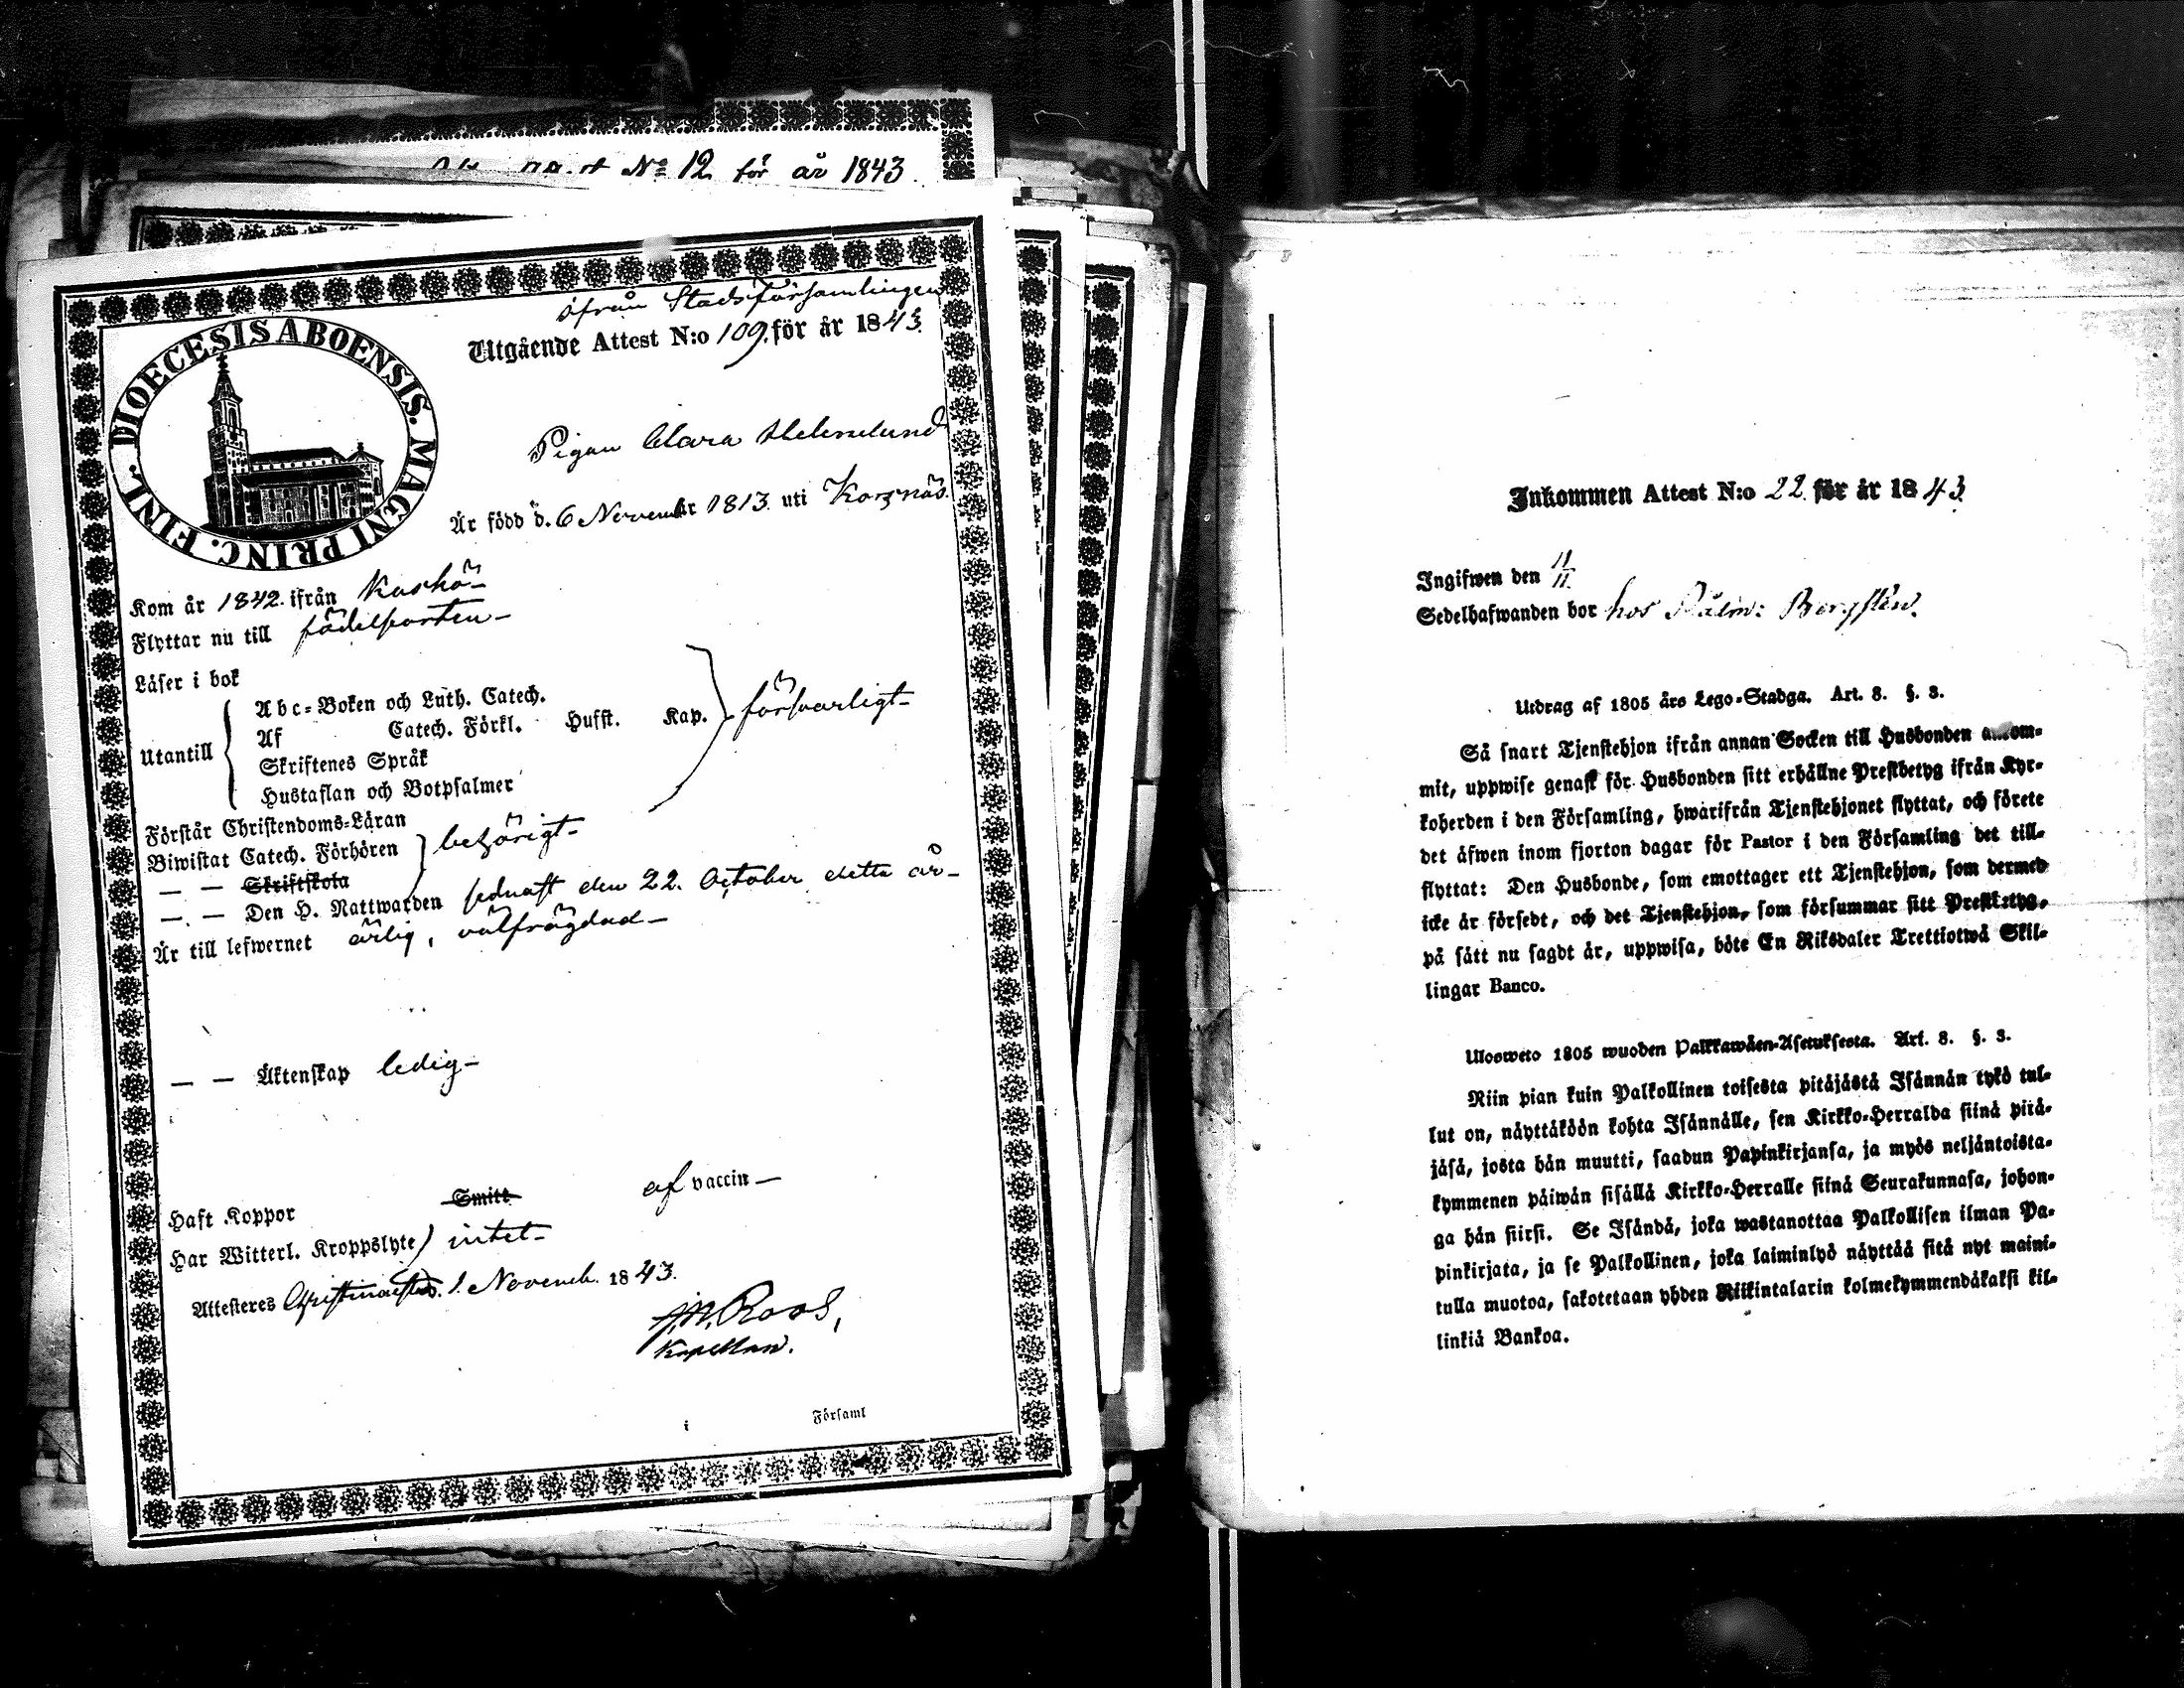 N:o 12 för år 1843.
ifrån Stadsförsamlingen
Utgående Attest N:o 109. för år 1843.
DIOECESIS ABOENSIS. MAGNI PRINC. FINL.
Pigan Clara Helenelund
Är född d. 6 November 1813. uti Korsnäs.
Kom år 1842. ifrån Kaskö-
Flyttar nu till födelseorten-
Läser i bok
Abc-Boken och Luth. Catech.
Af Catech. Förkl. Husst. Kap. försvarligt-
Utantill
Skriftenes Språk
Hustaflan och Botpsalmer
Förstår Christendoms-Läran
Biwistat Catech. Förhören behörigt-
— — Skriftskola
— — Den H. Nattwarden sednast den 22. October detta år-
Är till lefwernet ärlig, välfrägdad-
— — Äktenskap ledig-
Haft Koppor Smitt af vaccin —
Har Witterl. Kroppslyte intet-
Attesteres Christinæstad. 1. Novemb. 1843.
Roos,
Kapellan.
i Församl
Inkommen Attest N:o 22. för år 1843.
Ingifwen den 11/11.
Sedelhafwanden bor hos Rådm: Bergsten.
Utdrag af 1805 års Lego-Stadga. Art. 8. §. 3.
Så snart Tjenstehjon ifrån annan Socken till Husbonden ankom-
mit, uppwise genast för Husbonden sitt erhållne Prestbetyg ifrån Kyr-
koherden i den Församling, hwarifrån Tjenstehjonet flyttat, och förete
det äfwen inom fjorton dagar för Pastor i den Församling det till-
flyttat: Den Husbonde, som emottager ett Tjenstehjon, som dermed
icke är försedt, och det Tjenstehjon, som försummar sitt Prestbetyg,
på sätt nu sagdt är, uppwisa, böte En Riksdaler Trettiotwå Skil-
lingar Banco.
Ulosweto 1805 wuoden Palkkawäen-Asetuksesta. Art. 8. §. 3.
Niin pian kuin Palkollinen toisesta pitäjästä Isännän tykö tul-
lut on, näyttäköön kohta Isännälle, sen Kirkko-Herralda siinä pitä-
jäsä, josta hän muutti, saadun Papinkirjansa, ja myös neljäntoista-
kymmenen päiwän sisällä Kirkko-Herralle siinä Seurakunnasa, johon-
ga hän siirsi. Se Isändä, joka wastanottaa Palkollisen ilman Pa-
pinkirjata, ja se Palkollinen, joka laiminlyö näyttää sitä nyt maini-
tulla muotoa, sakotetaan yhden Riikintalarin kolmekymmendäkaksi kil-
linkiä Bankoa.